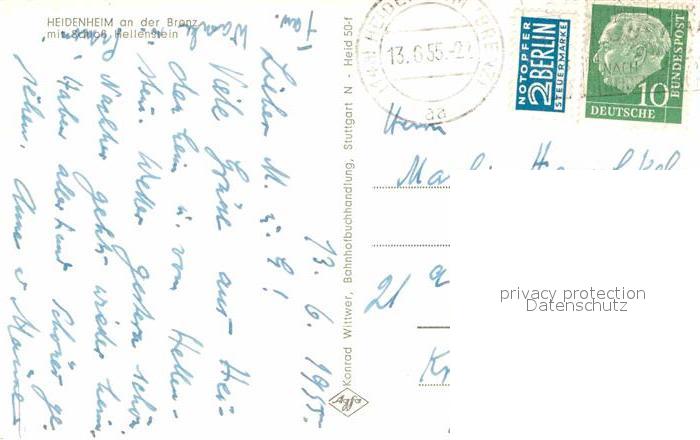 HEIDENHEIM an der Brenz
mit Schloß Hellenstein
13. 6. 1955.
Lieber M. u. G!
Viele Grüße aus Hei-
denheim u. vom Hellen-
stein. Wetter gestern schön
Nachher geht's wieder heim
Haben allerhand Schönes ge-
sehen. Anne
Konrad Wittwer, Bahnhofbuchhandlung, Stuttgart N - Heid 50-f
Agfa
13.6.55.-2
aa
NOTOPFER
2 BERLIN
STEUERMARKE
10
DEUTSCHE
BUNDESPOST
Herrn
21
privacy protection
Datenschutz